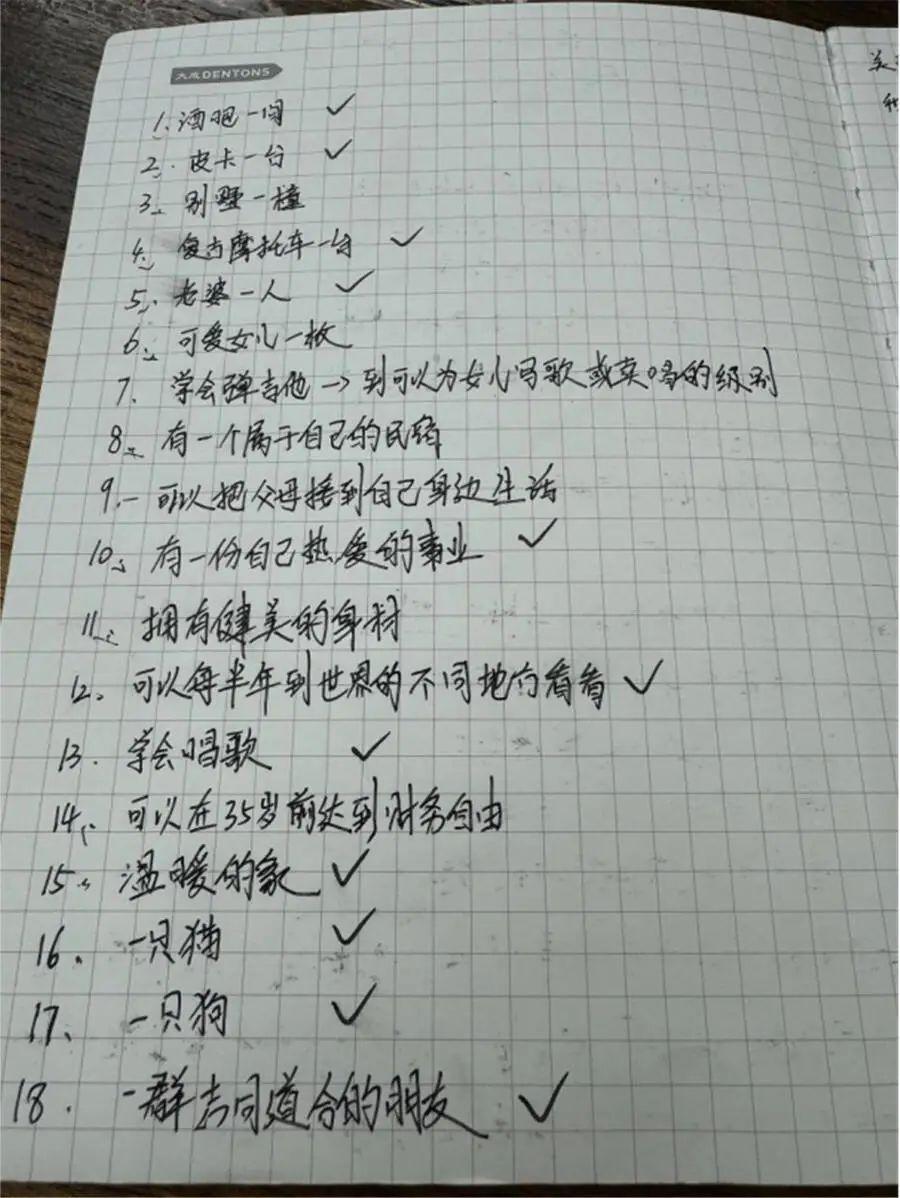 大成 DENTONS
1、酒吧一间 ✓
2、皮卡一台 ✓
3、别墅一幢
4、复古摩托车一台 ✓
5、老婆一人 ✓
6、可爱女儿一枚
7、学会弹吉他→到可以为女儿写歌或卖唱的级别
8、有一个属于自己的民宿
9、可以把父母接到自己身边生活
10、有一份自己热爱的事业 ✓
11、拥有健美的身材
12、可以每半年到世界的不同地方看看 ✓
13、学会唱歌 ✓
14、可以在35岁前达到财务自由
15、温暖的家 ✓
16、一只猫 ✓
17、一只狗 ✓
18、一群志同道合的朋友 ✓
美